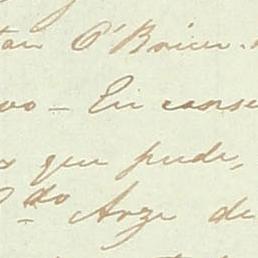 tan O'Brien.
vo — En conse
que pude,
do Arze de